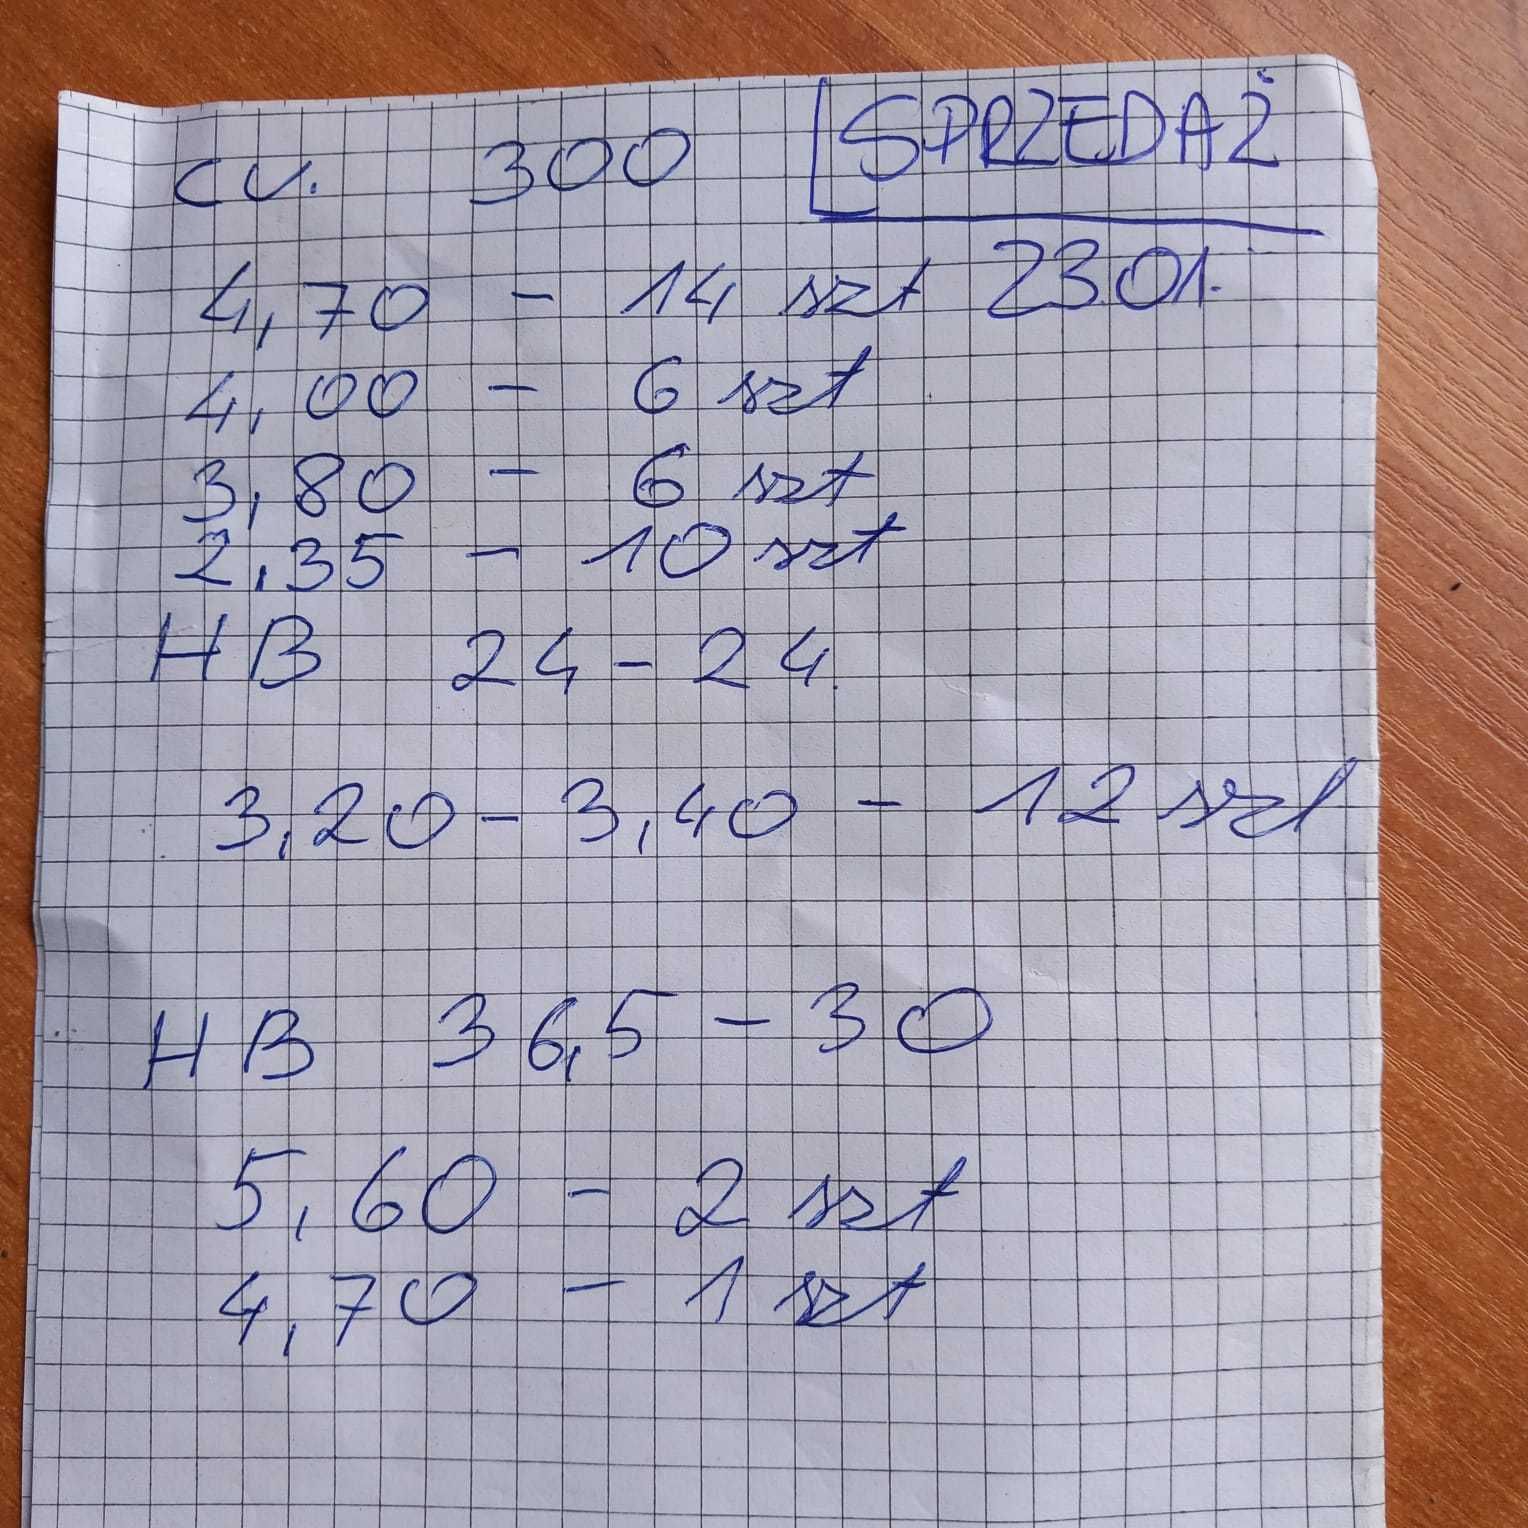 cv. 300 SPRZEDAŻ
4,70 - 14 szt 23.01.
4,00 - 6 szt
3,80 - 6 szt
2,35 - 10 szt
HB 24 - 24.
3,20 - 3,40 - 12 szt
HB 36,5 - 30
5,60 - 2 szt
4,70 - 1 szt